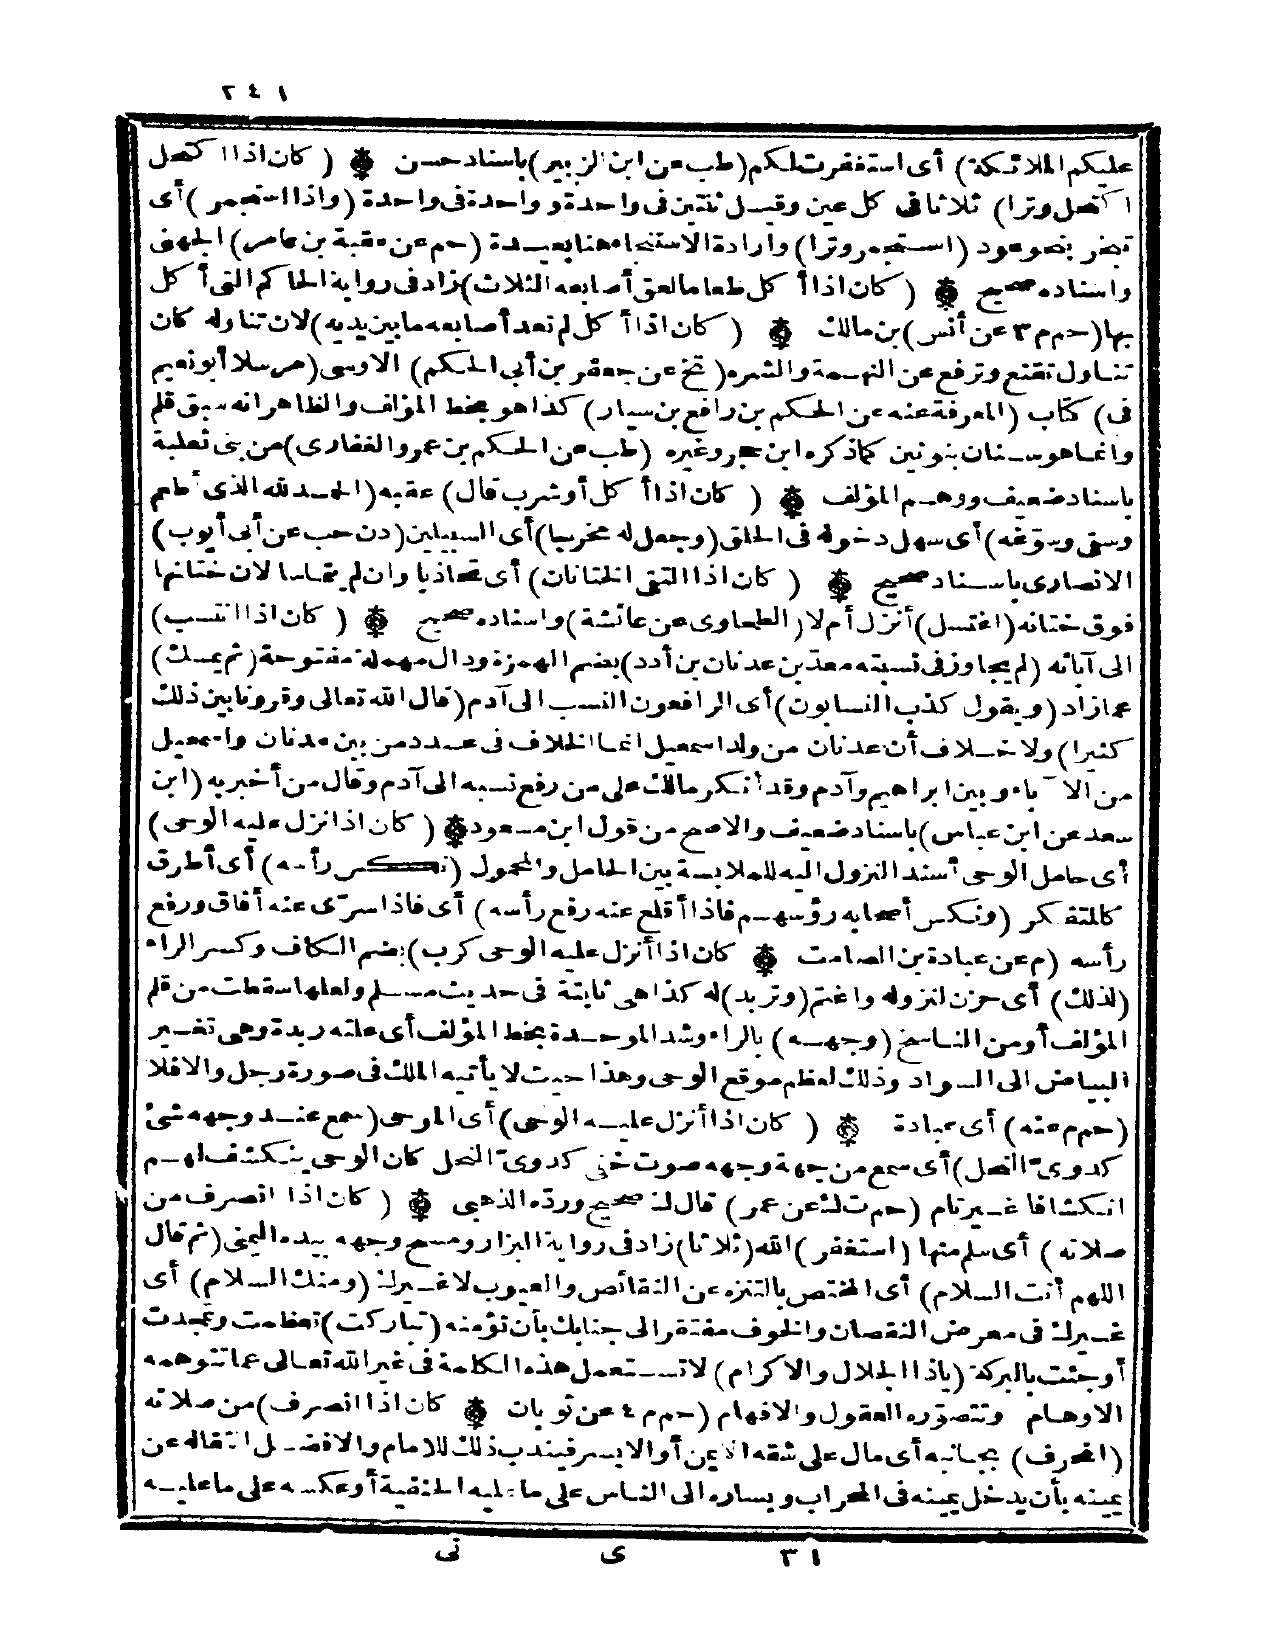 ٢٤١
عليكم الملائكة) أى استغفرت لكم (طب عن ابن الزبير) باسناد حسن ( كان اذا اكتحل
اكتحل وترا) ثلاثا فى كل عين وقيل ثنتين فى واحدة وواحدة فى واحدة (واذا استجمر) أى
تبخر بنحو عود (استجمر وترا) وارادة الاستنجاء هنا بعيدة (حم عن عقبة بن عامر) الجهنى
واسناده صحيح ( كان اذا أكل طعاما لعق أصابعه الثلاث) زاد فى رواية الحاكم التى أكل
بها (حم م ٣ عن أنس) بن مالك ( كان اذا أكل لم تعد أصابعه ما بين يديه) لان تناوله كان
تناول تقنع وترفع عن النهمة والشره (تخ عن جعفر بن أبى الحكم) الاوسى (مرسلا أبو نعيم
فى) كتاب (المعرفة عنه عن الحكم بن رافع بن سيار) كذا هو بخط المؤلف والظاهر انه سبق قلم
وانما هو سنان بنونين كما ذكره ابن حجر وغيره (طب عن الحكم بن عمرو الغفارى) من بنى ثعلبة
باسناد ضعيف ووهم المؤلف ( كان اذا أكل أو شرب قال) عقبه (الحمد لله الذى أطعم
وسقى وسوّغه) أى سهل دخوله فى الحلق (وجعل له مخرجا) أى السبيلين (د ن حب عن أبى أيوب)
الانصارى باسناد صحيح ( كان اذا التقى الختانان) أى تحاذيا وان لم يتماسا لان ختانها
فوق ختانه (اغتسل) أنزل أم لا (الطحاوى عن عائشة) واسناده صحيح ( كان اذا انتسب)
الى آبائه (لم يجاوز فى نسبته معد بن عدنان بن أدد) بضم الهمزة ودال مهملة مفتوحة (ثم يمسك)
عما زاد (ويقول كذب النسابون) أى الرافعون النسب الى آدم (قال الله تعالى وقرونا بين ذلك
كثيرا) ولا خلاف أن عدنان من ولد اسمعيل انما الخلاف فى عدد من بين عدنان واسمعيل
من الآباء وبين ابراهيم وآدم وقد أنكر مالك على من رفع نسبه الى آدم وقال من أخبر به (ابن
سعد عن ابن عباس) باسناد ضعيف والاصح من قول ابن مسعود ( كان اذا نزل عليه الوحى)
أى حامل الوحى أسند النزول اليه للملابسة بين الحامل والمحمول (نكس رأسه) أى أطرق
كالمتفكر (ونكس أصحابه رؤسهم فاذا أقلع عنه رفع رأسه) أى فاذا سرّى عنه أفاق ورفع
رأسه (م عن عبادة بن الصامت كان اذا أنزل عليه الوحى كرب) بضم الكاف وكسر الراء
(لذلك) أى حزن لنزوله واغتم (وتربد) له كذا هى ثابتة فى حديث مسلم ولعلها سقطت من قلم
المؤلف أو من الناسخ (وجهه) بالراء وشد الموحدة بخط المؤلف أى علته ربدة وهى تغير
البياض الى السواد وذلك لعظم موقع الوحى وهذا حيث لا يأتيه الملك فى صورة رجل والا فلا
(حم م عنه) أى عبادة ( كان اذا أنزل عليه الوحى) أى الموحى (سمع عند وجهه شئ
كدوىّ النحل) أى سمع من جهة وجهه صوت خفى كدوىّ النحل كان الوحى ينكشف لهم
انكشافا غير تام (حم ت ك عن عمر) قال ك صحيح ورده الذهبى ( كان اذا انصرف من
صلاته) أى سلم منها (استغفر) الله (ثلاثا) زاد فى رواية البزار ومسح وجهه بيده اليمنى (ثم قال
اللهم أنت السلام) أى المختص بالتنزه عن النقائص والعيوب لا غيرك (ومنك السلام) أى
غيرك فى معرض النقصان والخوف مفتقر الى جنابك بأن تؤمنه (تباركت) تعظمت وتمجدت
أو جئت بالبركة (ياذا الجلال والاكرام) لا تستعمل هذه الكلمة فى غير الله تعالى عما تتوهمه
الاوهام وتتصوّره العقول والافهام (حم م ٤ عن ثوبان كان اذا انصرف) من صلاته
(انحرف) بجانبه أى مال على شقه الايمن أو الايسر فيندب ذلك للامام والافضل انتقاله عن
يمينه بأن يدخل يمينه فى المحراب ويساره الى الناس على ما عليه الحنفية أو عكسه على ما عليه
٣١ ى نى